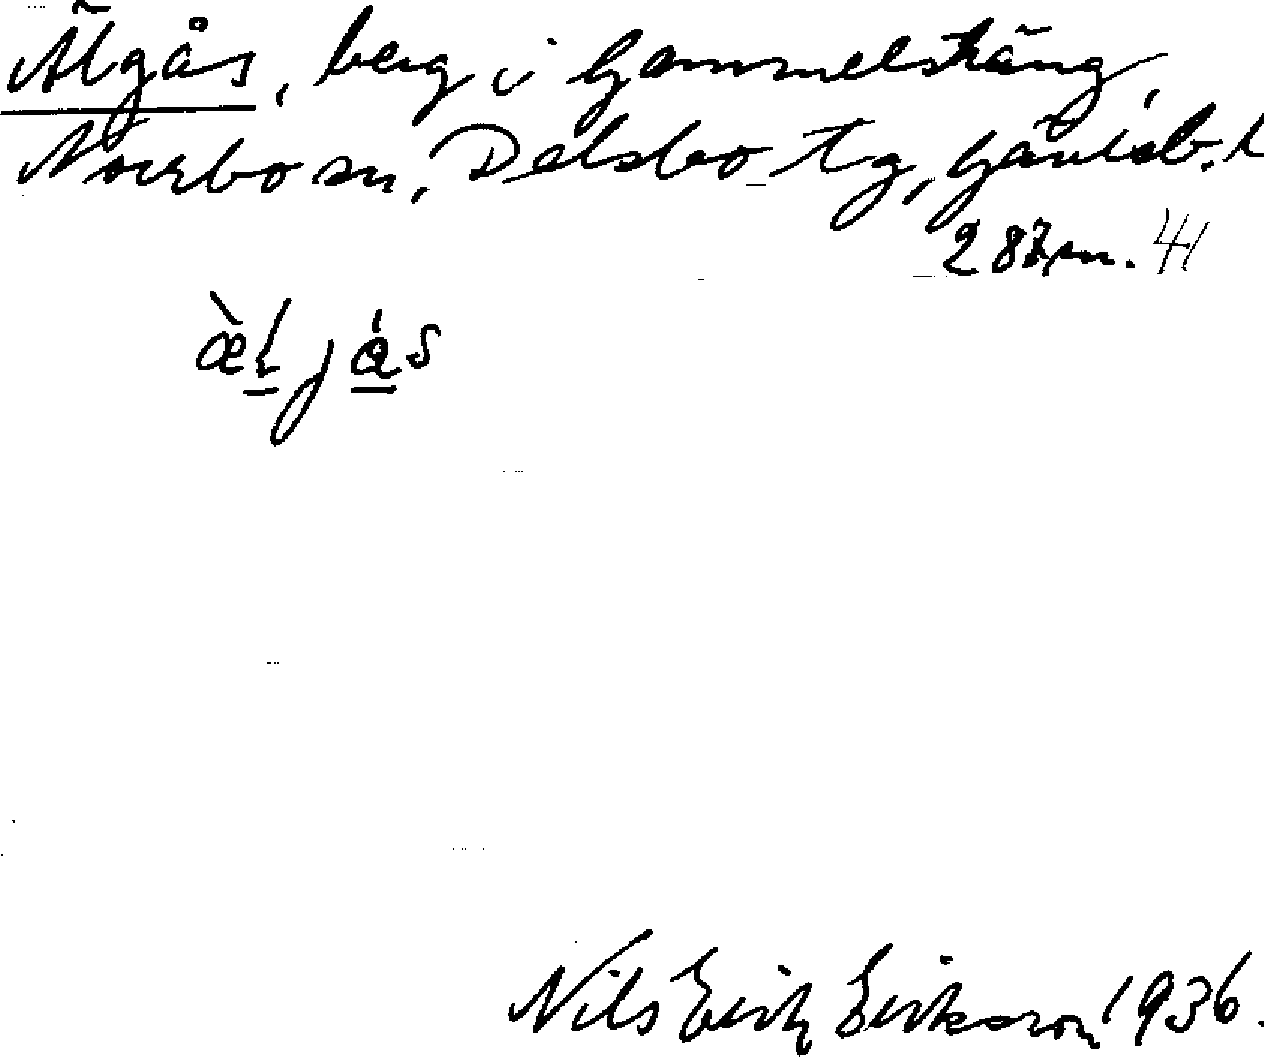 Älgås, berg i Gammelsträng,
Norrbo sn, Delsbo tg, Gävleb. l
287 m. 44
æ̀ljás
Nils Erik Eriksson 1936.